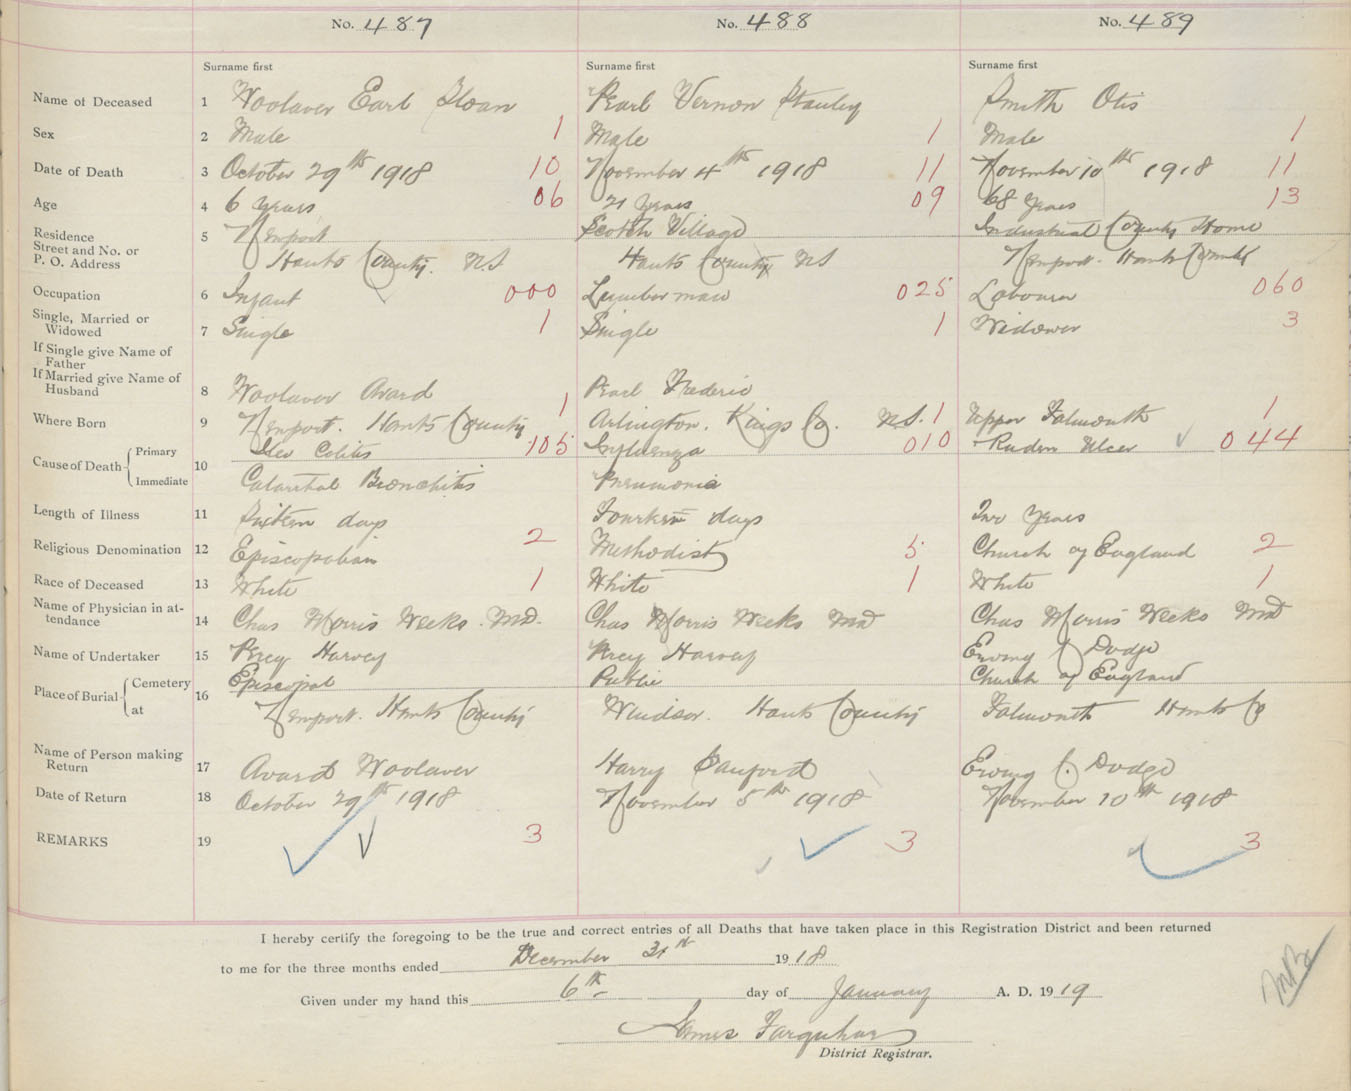 No. 487 No. 488 No. 489
Surname first Surname first Surname first
Name of Deceased 1 Woolaver Earl Sloan Pearl Vernon Stanley Smith Otis
Sex 2 Male 1 Male 1 Male 1
Date of Death 3 October 29th 1918 10 November 4th 1918 11 November 10th 1918 11
Age 4 6 years 06 21 years 09 68 years 13
Residence
Street and No. or
P. O. Address
5 Newport Scotch Village Industrial County Home
Hants County. N.S Hants County N S Newport. Hants County
Occupation 6 Infant 000 Lumberman 025 Labourer 060
Single, Married or
Widowed
7 Single 1 Single 1 Widower 3
If Single give Name of
Father
If Married give Name of
Husband
8 Woolaver Avard Pearl Frederic
Where Born 9 Newport. Hants County 1 Arlington. Kings Co. N.S. 1 Upper Falmouth 1
Cause of Death Primary
Immediate
10 Ileo Colitis 105 Influenza 010 Ulcer 044
Catarrhal Bronchitis Pneumonia
Length of Illness 11 Sixteen days Fourteen days Two Years
Religious Denomination 12 Episcopalian 2 Methodist 5 Church of England 2
Race of Deceased 13 White 1 White 1 White 1
Name of Physician in at-
tendance
14 Chas Morris Weeks. M.D. Chas Morris Weeks MD Chas Morris Weeks MD
Name of Undertaker 15 Percy Harvey Percy Harvey Ewing J Dodge
Place of Burial Cemetery
at
16 Episcopal Public Church of England
Newport. Hants County Windsor. Hants County Falmouth Hants Co
Name of Person making
Return
17 Avard Woolaver Harry Sanford Ewing J. Dodge
Date of Return 18 October 29th 1918 November 5th 1918 November 10th 1918
REMARKS 19 3 3 3
I hereby certify the foregoing to be the true and correct entries of all Deaths that have taken place in this Registration District and been returned
to me for the three months ended December 31st 1918
Given under my hand this 6th day of January A. D. 1919
James Farquhar
District Registrar.